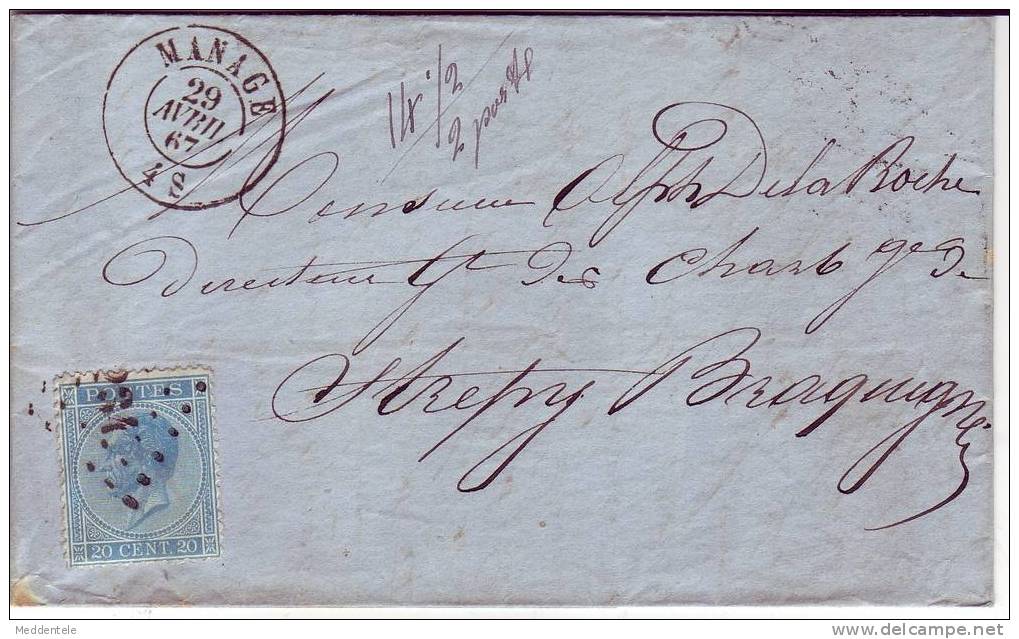 MANAGE
29
AVRIL
67
4 S
14 1/2
2 ports
Monsieur Alph Dela Roche
Directeur Gt des Charb ges de
Strepy Bracquegnies
POSTES
20 CENT. 20
Meddentele
delcampe.net